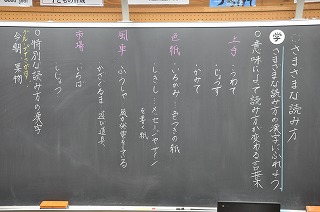 さまざまな読み方
学 さまざまな読み方の漢字にふれよう
○意味によって読み方が変わる言葉
上手
うわて
じょうず
かみて
色紙
いろがみ…色つきの紙
しきし…メッセージやサイン
を書く紙
風車
ふうしゃ
かざぐるま
市場
いちば
しじょう
○特別な読み方の漢字
今朝 果物